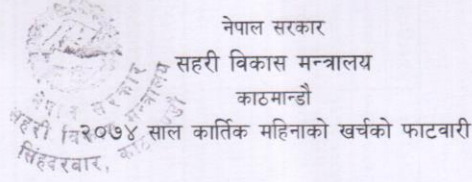 नेपाल सरकार
सहरी विकास मन्त्रालय
काठमान्डौ
२०७४ साल कार्तिक महिनाको खर्चको फाटवारी
नेपाल सरकार
सहरी विकास मन्त्रालय
सिंहदरबार,